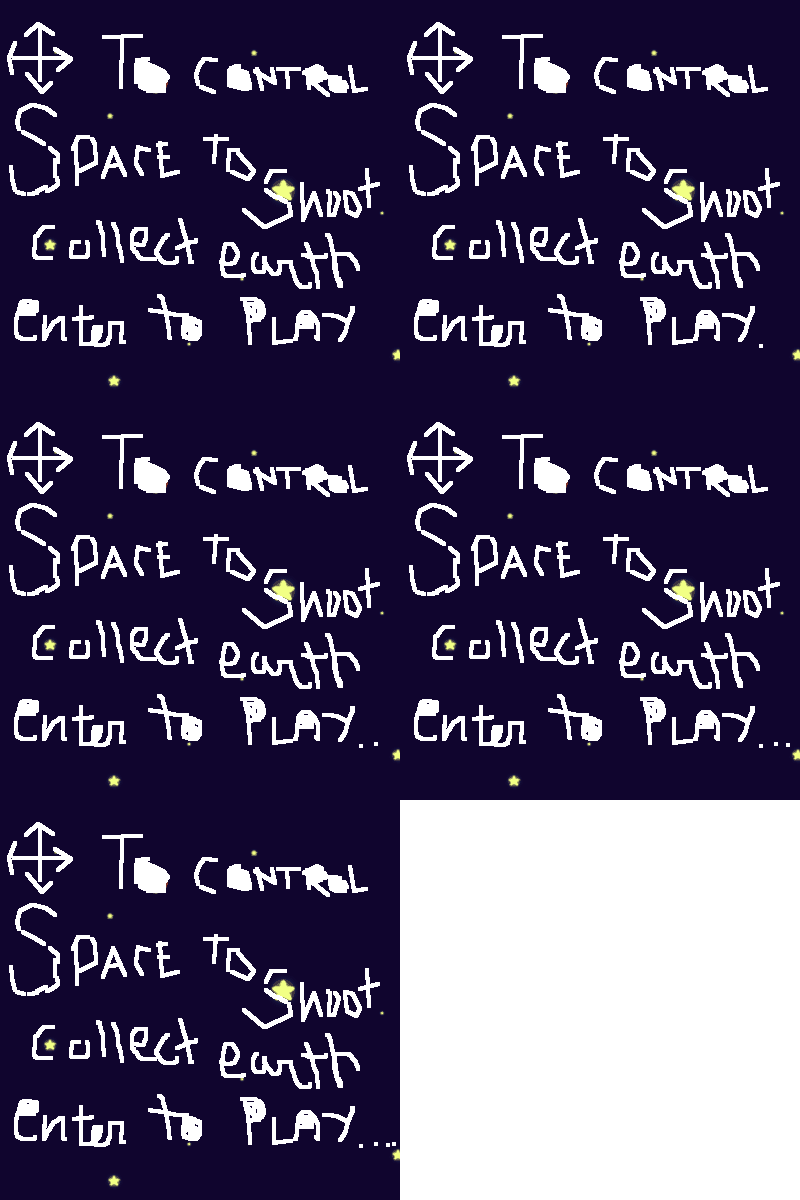 To CONTROL
SPACE TO Shoot
Collect earth
Enter to PLAY
To CONTROL
SPACE TO Shoot
Collect earth
Enter to PLAY.
To CONTROL
SPACE TO Shoot
Collect earth
Enter to PLAY..
To CONTROL
SPACE TO Shoot
Collect earth
Enter to PLAY...
To CONTROL
SPACE TO Shoot
Collect earth
Enter to PLAY....